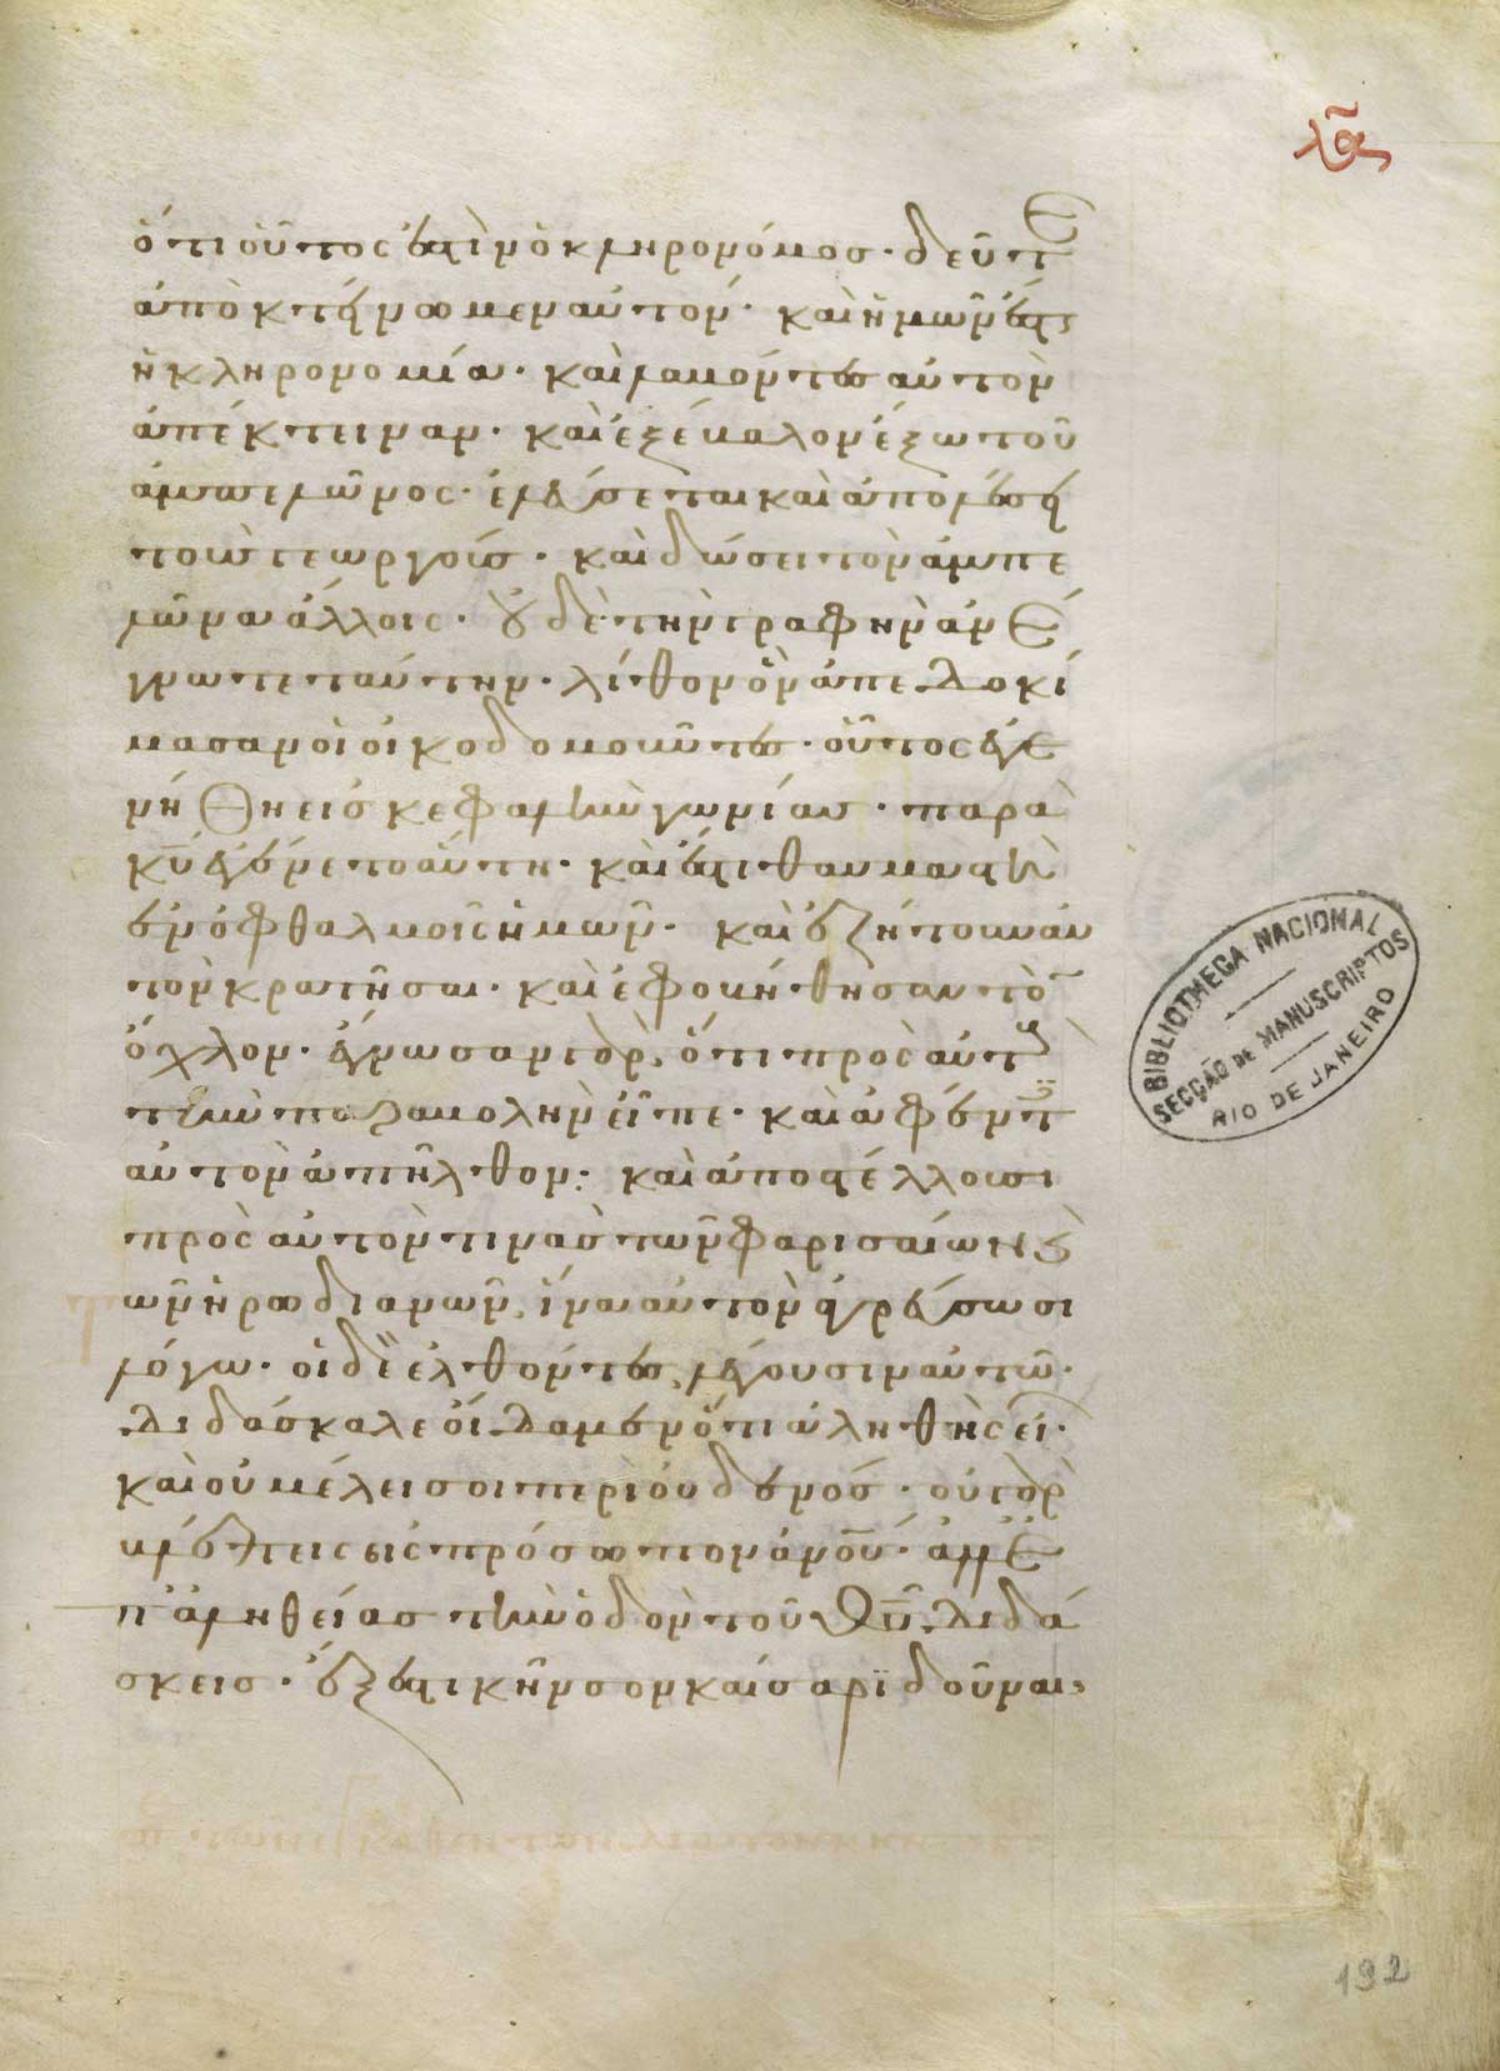 λϛ
ὅτι οὗτος ἐστὶν ὁ κληρονόμοσ· δεῦτε
ἀποκτείνωμεν αὐτόν· καὶ ἡμῶν ἔσται
ἡ κληρονομία· καὶ λαβόντες αὐτὸν
ἀπέκτειναν· καὶ ἐξέβαλον ἔξω τοῦ
ἀμπελῶνος· ἐλεύσεται καὶ ἀπολέσει
τοὺς γεωργούς· καὶ δώσει τὸν ἀμπε
λῶνα ἄλλοις· οὐδὲ τὴν γραφὴν ἀνέ
γνωτε ταύτην· λίθον ὃν ἀπεδοκί
μασαν οἱ οἰκοδομοῦντες· οὗτος ἐγε
νήθη εἰς κεφαλὴν γωνίας· παρὰ
κ̅υ̅ ἐγένετο αὕτη· καὶ ἔστι θαυμαστὴ
ἐν ὀφθαλμοῖς ἡμῶν· καὶ ἐζήτουν αὐ
τὸν κρατῆσαι· καὶ ἐφοβήθησαν τὸν
ὄχλον· ἔγνωσαν γὰρ, ὅτι πρὸς αὐτοὺς
τὴν παραβολὴν εἶπε· καὶ ἀφέντες
αὐτὸν ἀπῆλθον: καὶ ἀποστέλλουσι
πρὸς αὐτὸν τινὰς τῶν φαρισαίων καὶ
τῶν ἡρωδιανῶν, ἵνα αὐτὸν ἀγρεύσωσι
λόγω· οἱ δὲ ἐλθόντες, λέγουσιν αὐτῶ·
διδάσκαλε οἴδαμεν ὅτι ἀληθὴς εἶ·
καὶ οὐ μέλει σοι περὶ οὐδενός· οὐ γὰρ
βλέπεις εἰς πρόσωπον ἀ̅ν̅ο̅υ̅· ἀλλ' ἐ
π' ἀληθείας τὴν ὁδὸν τοῦ θ̅υ̅ διδά
σκεις· ἔξεστι κῆνσον καίσαρϊ δοῦναι,
BIBLIOTHECA NACIONAL
SECÇÃO DE MANUSCRIPTOS
RIO DE JANEIRO
192